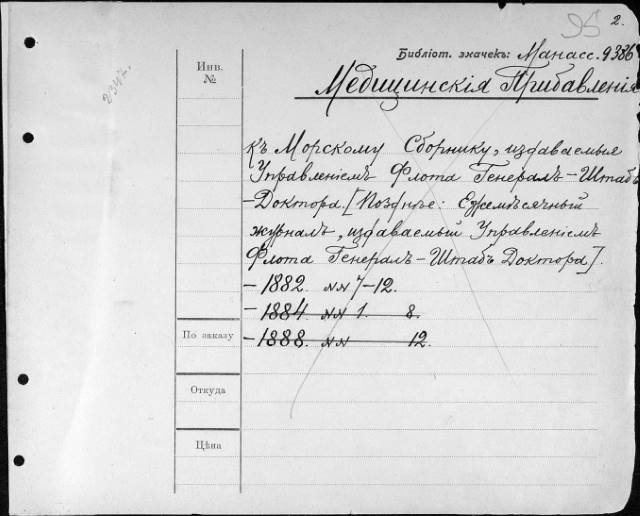 95 2.
Библіот. значекъ: Манасс. 9386
Инв.
№
2347.
Медицинскія Прибавленія
къ Морскому Сборнику, издаваемыя
Управленіемъ Флота Генералъ-Штабъ
-Доктора. [Позднѣе: Ежемѣсячный
журналъ, издаваемый Управленіемъ
Флота Генералъ-Штабъ Доктора].
- 1882 №№ 7-12.
- 1884 №№ 1. 8.
- 1888. №№ 12.
По заказу
Откуда
Цѣна